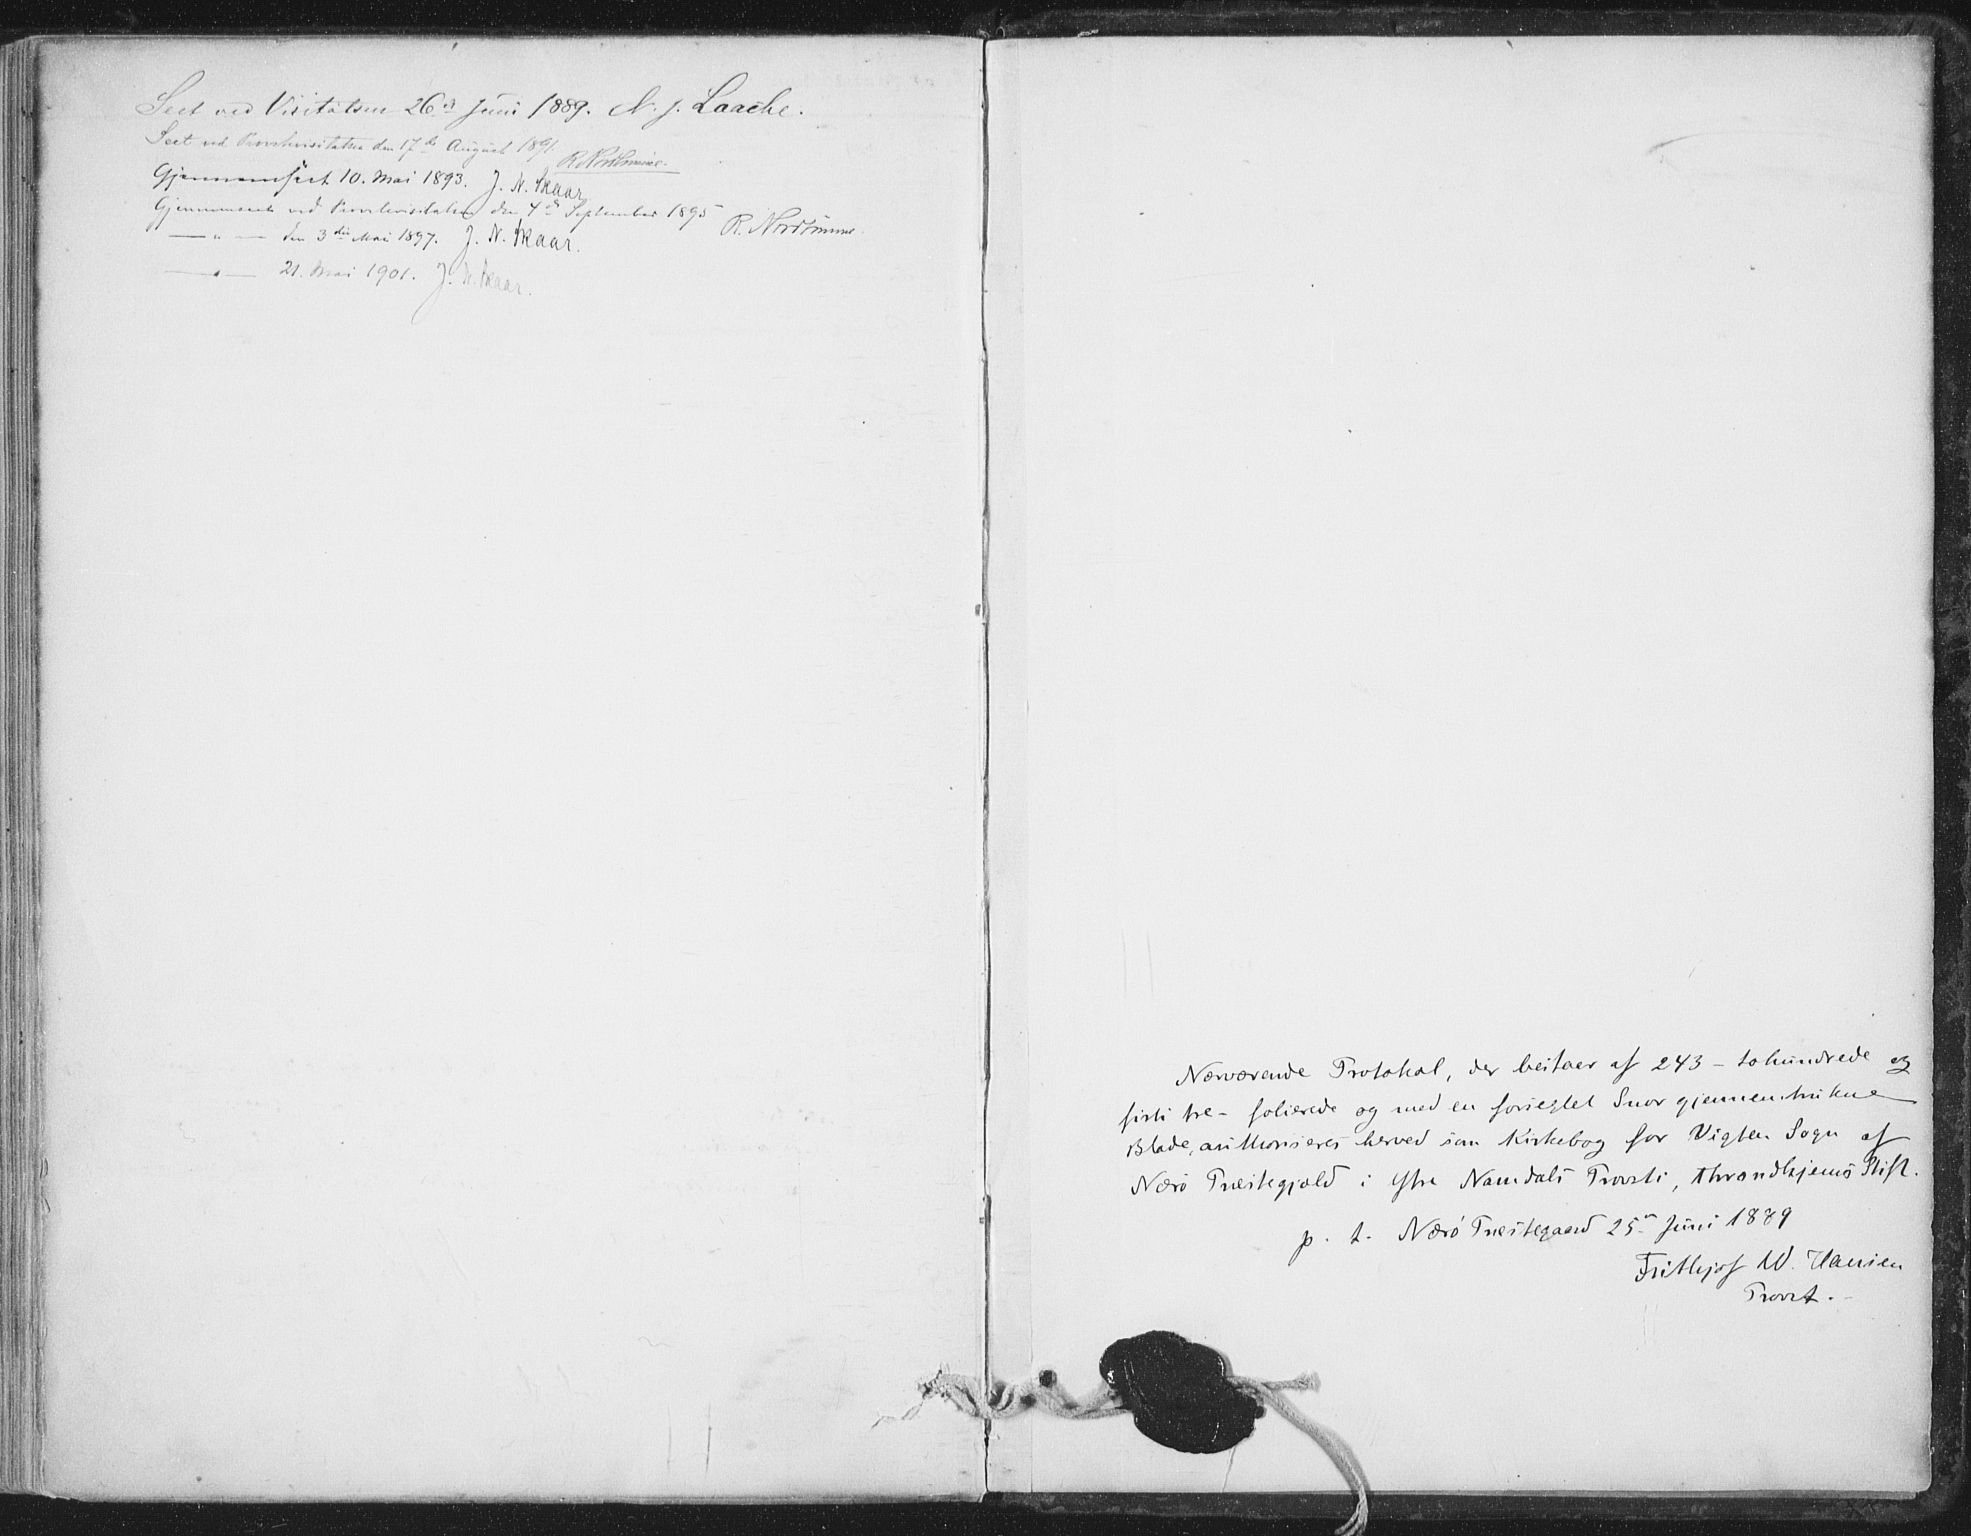 Seet ved Visitatsen 26de Juni 1889. N. J. Laache.
Seet ved Provstevisitatsen den 17de August 1891.
R. Nordtømme.
Gjennemseet 10. Mai 1893. J. N. Skaar
Gjennemseet ved Provstevisitatsen den 4de September 1895
R. Nordtømme.
— „ — den 3die Mai 1897. J. N. Skaar.
— „ — 21. Mai 1901. J. N. Skaar.
Nærværende Protokol, der bestaaer af 243 - tohundrede og
firti tre - folierede og med en forseglet Snor gjennemtrukne
Blade, authoriseres herved som Kirkebog for Vigten Sogn af
Nærø Præstegjæld i Ytre Namdals Provsti, Throndhjems Stift.
p. t. Nærø Præstegaard 25de Juni 1889
Frithjof W. Hansen
Provst.